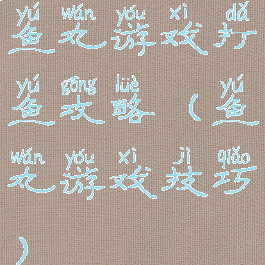 yú wán yóu xì dǎ
鱼丸游戏打
yú gōng lüè yú
鱼攻略(鱼
wán yóu xì jì qiǎo
丸游戏技巧
)